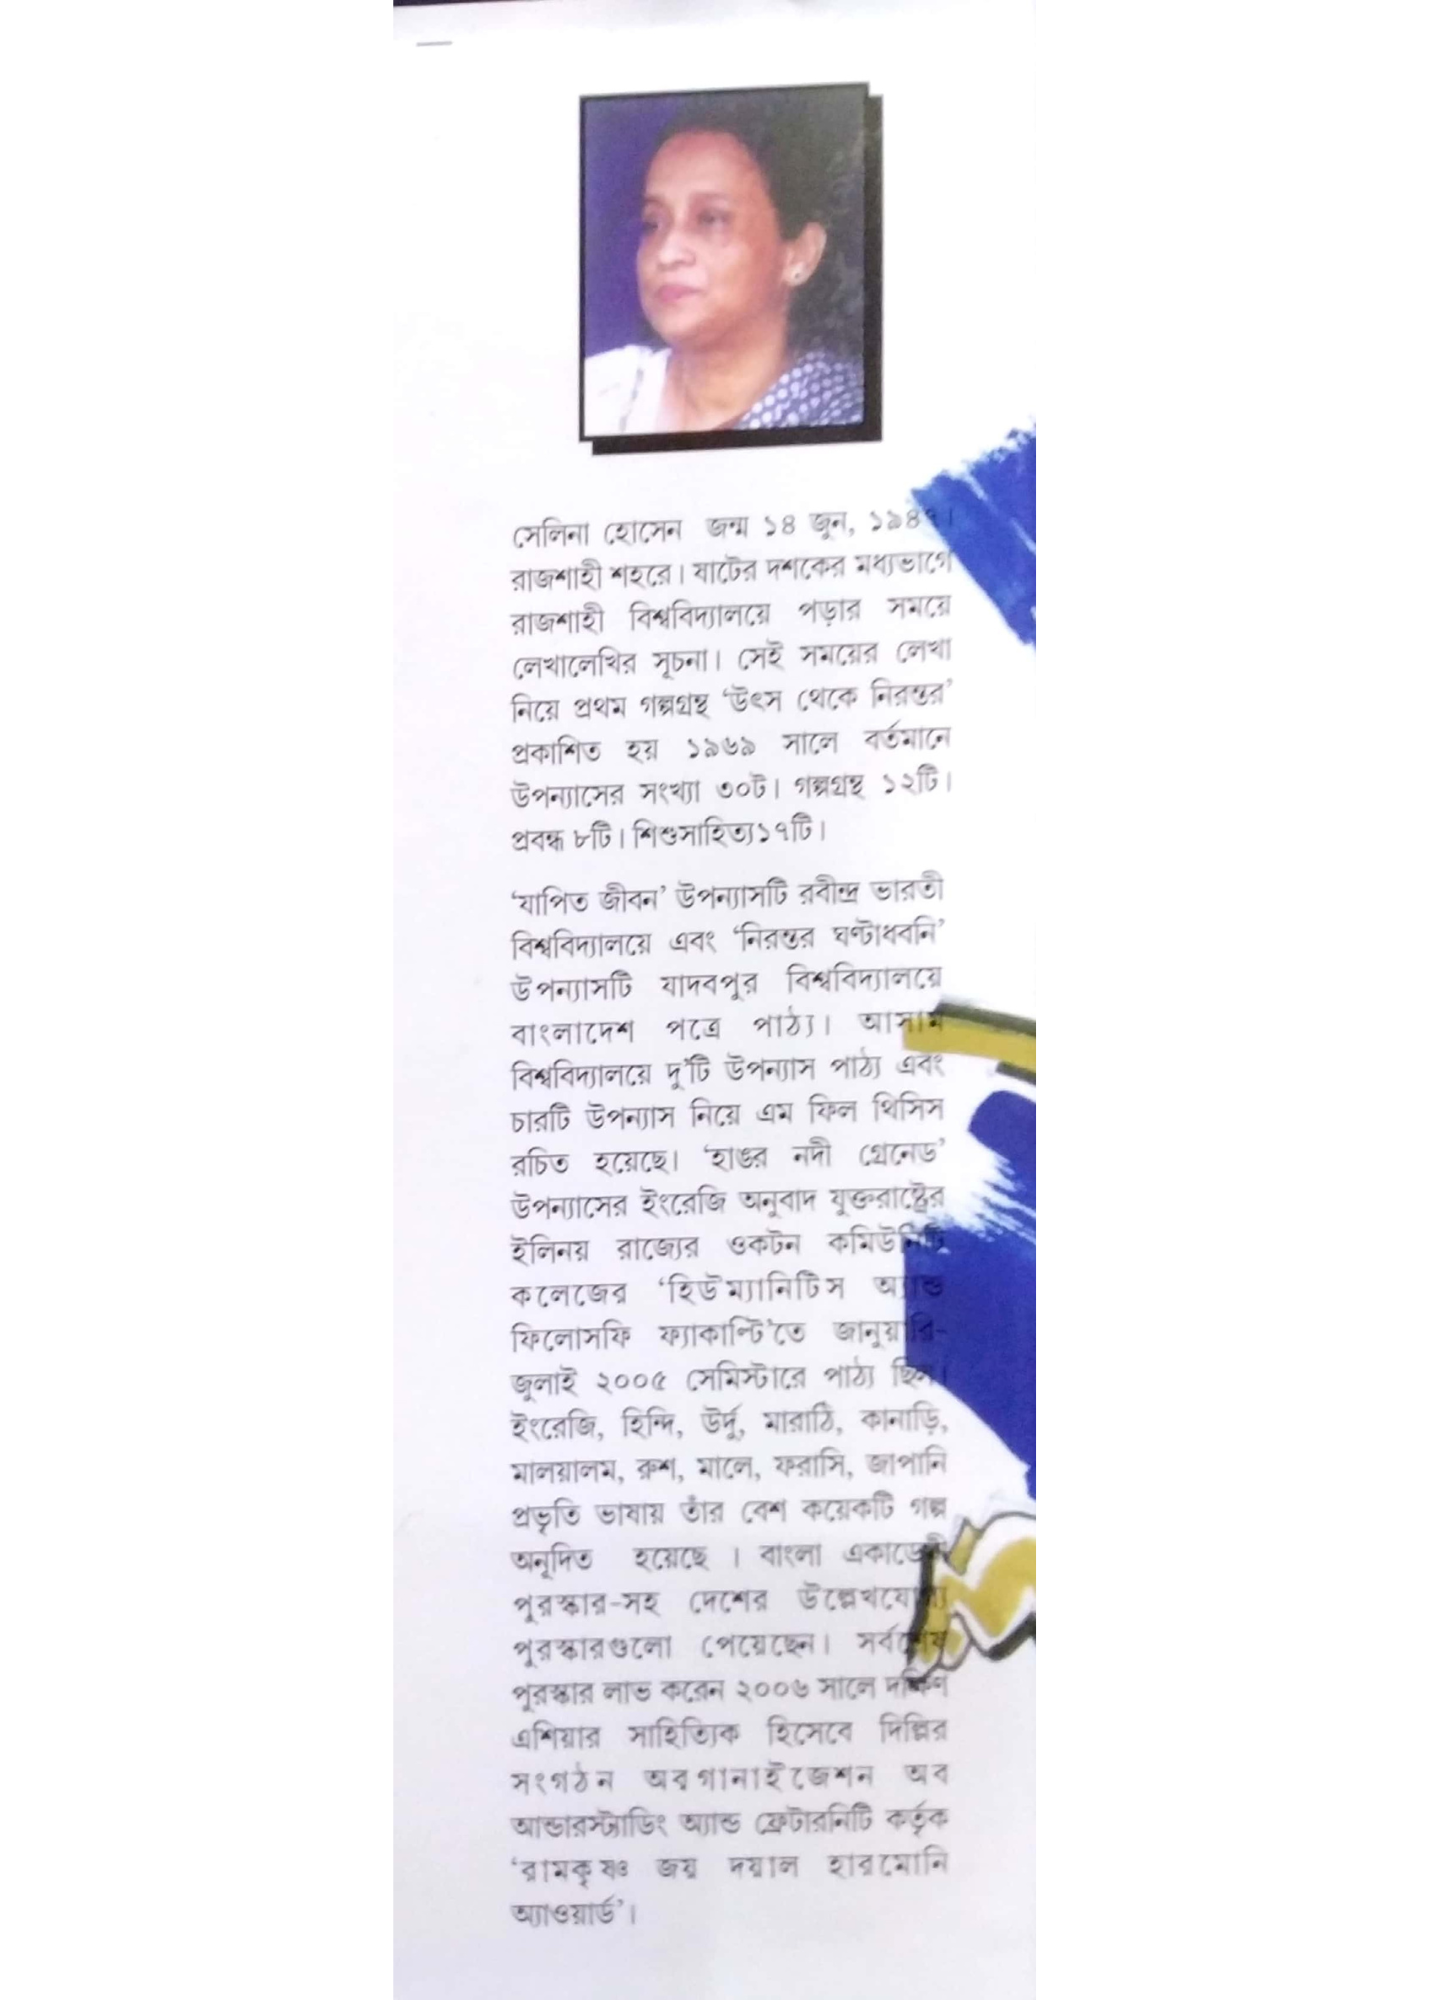 সেলিনা হোসেন জন্ম ১৪ জুন, ১৯৪৭।
রাজশাহী শহরে। ষাটের দশকের মধ্যভাগে
রাজশাহী বিশ্ববিদ্যালয়ে পড়ার সময়ে
লেখালেখির সূচনা। সেই সময়ের লেখা
নিয়ে প্রথম গল্পগ্রন্থ ‘উৎস থেকে নিরন্তর’
প্রকাশিত হয় ১৯৬৯ সালে বর্তমানে
উপন্যাসের সংখ্যা ৩০ট। গল্পগ্রন্থ ১২টি।
প্রবন্ধ ৮টি। শিশুসাহিত্য১৭টি।
‘যাপিত জীবন’ উপন্যাসটি রবীন্দ্র ভারতী
বিশ্ববিদ্যালয়ে এবং ‘নিরন্তর ঘণ্টাধবনি’
উপন্যাসটি যাদবপুর বিশ্ববিদ্যালয়ে
বাংলাদেশ পত্রে পাঠ্য। আসাম
বিশ্ববিদ্যালয়ে দু’টি উপন্যাস পাঠ্য এবং
চারটি উপন্যাস নিয়ে এম ফিল থিসিস
রচিত হয়েছে। ‘হাঙর নদী গ্রেনেড’
উপন্যাসের ইংরেজি অনুবাদ যুক্তরাষ্ট্রের
ইলিনয় রাজ্যের ওকটন কমিউনিটি
কলেজের ‘হিউম্যানিটিস অ্যান্ড
ফিলোসফি ফ্যাকাল্টি’তে জানুয়ারি-
জুলাই ২০০৫ সেমিস্টারে পাঠ্য ছিল।
ইংরেজি, হিন্দি, উর্দু, মারাঠি, কানাড়ি,
মালয়ালম, রুশ, মালে, ফরাসি, জাপানি
প্রভৃতি ভাষায় তাঁর বেশ কয়েকটি গল্প
অনূদিত হয়েছে । বাংলা একাডেমী
পুরস্কার-সহ দেশের উল্লেখযোগ্য
পুরস্কারগুলো পেয়েছেন। সর্বশেষ
পুরস্কার লাভ করেন ২০০৬ সালে দক্ষিণ
এশিয়ার সাহিত্যিক হিসেবে দিল্লির
সংগঠন অরগানাইজেশন অব
আন্ডারস্ট্যাডিং অ্যান্ড ফ্রেটারনিটি কর্তৃক
‘রামকৃষ্ণ জয় দয়াল হারমোনি
অ্যাওয়ার্ড’।